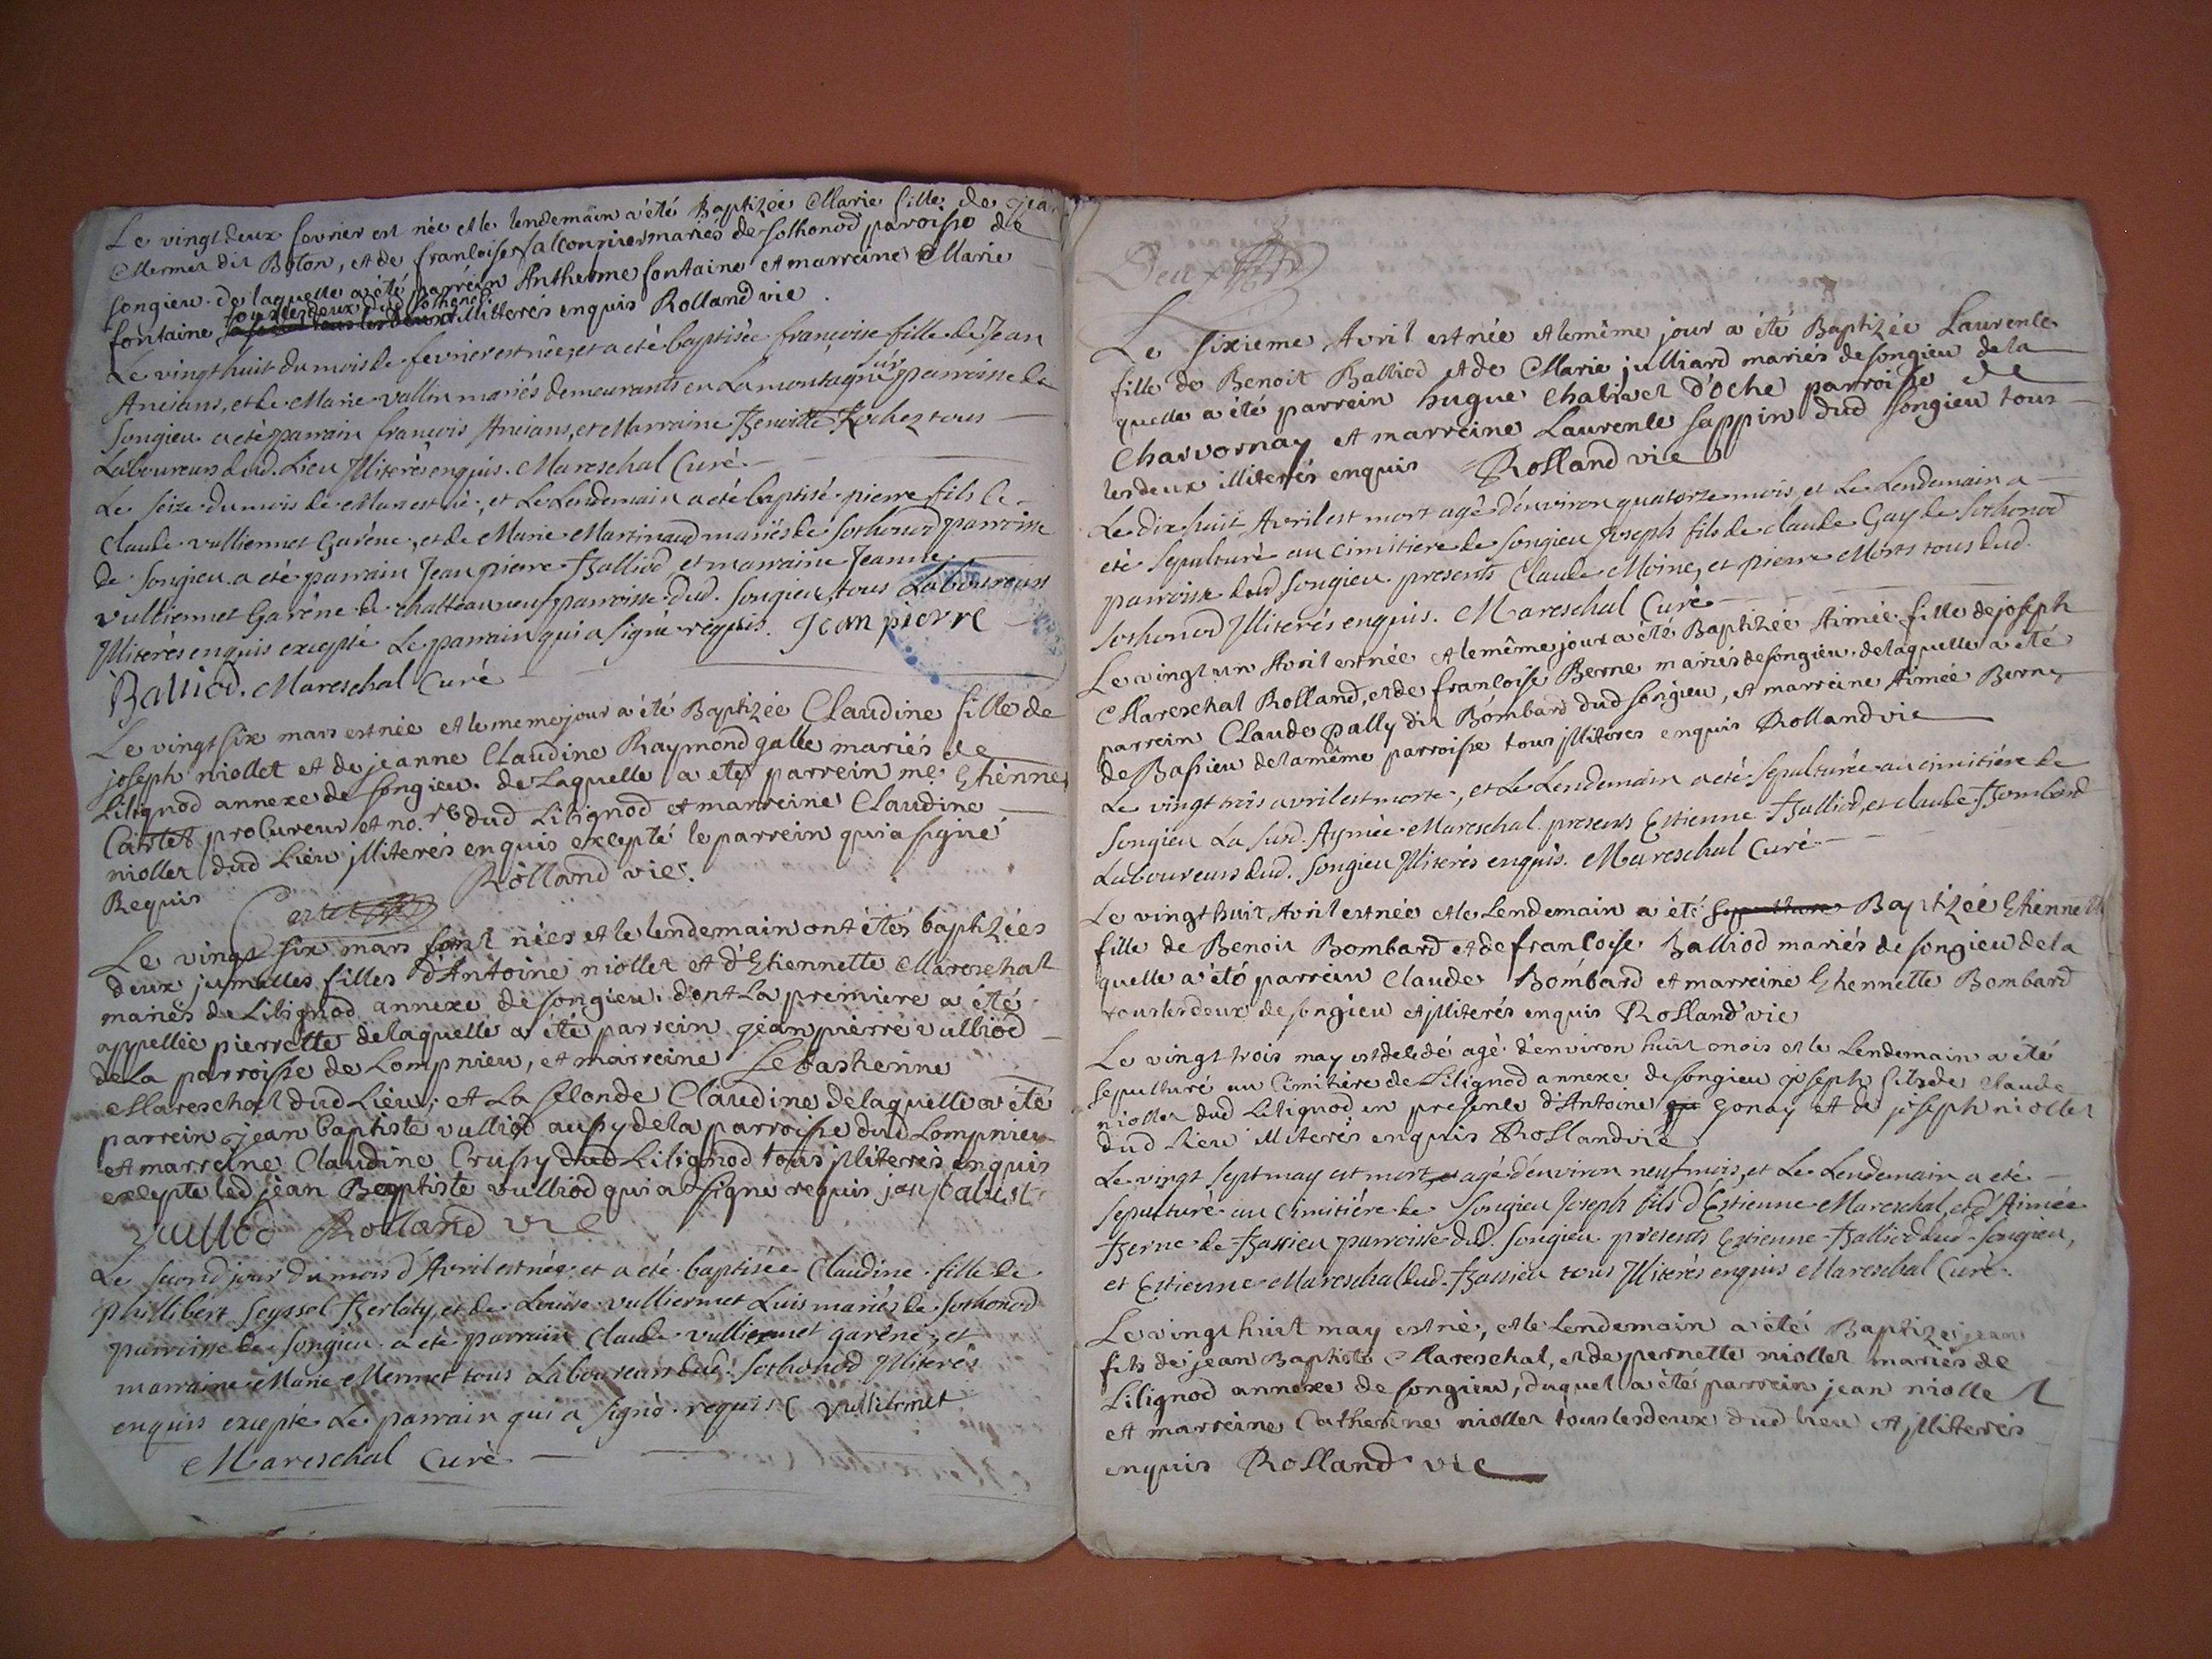 Le vingt deux fevrier est née et le lendemain a été Baptizée Marie fille de jean
Mermet dit Boton, et de francoise falconnier mariés de sothonod paroisse de
songieu. de laquelle a été parrein Anthelme fontaine et marreine Marie
tous les deux dud sothonod
fontaine illiterés enquis Rolland vic
Le vingt huit du mois de fevrier est née, et a été baptisée françoise fille de Jean
Ancians, et de Marie vallin mariés demeurants en La montagne sur parroisse de
Songieu a été parrain francois Ancians, et Marraine Benoite Rochez tous
Laboureurs dud. Lieu Illiterés enquis. Mareschal Curé
Le seize du mois de Mars est né, et Le Lendemain a été baptisé pierre fils de
Claude vulliermet Garéne, et de Marie Martinaud mariés de Sothonod parroisse
de Songieu a été parrain Jean pierre Balliod, et marraine Jeanne
vulliermet Garéne de chatteauneuf parroisse dud. Songieu, tous Laboureurs
Illiterés enquis excepté Le parrain qui a signé requis. Jean pierre
Balliod. Mareschal Curé
Le vingt six mars est née et le meme jour a été Baptizée Claudine fille de
joseph niollet et de jeanne Claudine Raymond galle mariés de
Lilignod annexe de songieu. de Laquelle a été parrein me. Etienne
Cartet procureur et no.re dud Lilignod et marreine Claudine
niollet dud Lieu jlliterés enquis excepté le parrein qui a signé
Requis Cartet Rolland vic.
Le vingt six mars sont nées et le lendemain ont étés baptizées
deux jumelles filles d'Antoine niollet et d'Etiennette Mareschal
mariés de Lilignod annexe de songieu. dont La premiere a été
appellée pierrette de laquelle a été parrein jean pierre vulliod
de La parroisse de Lompnieu, et marreine Sebastienne
Mareschal dud Lieu; et La seconde Claudine de laquelle a été
parrein jean baptiste vulliod aussy de la parroisse dud Lompnieu
et marreine Claudine Crussy dud Lilignod tous jlliterés enquis
excepte led jean Baptiste vulliod qui a signé requis jan babtist
vulliod Rolland vic
Le second jour du mois d'Avril est née, et a été baptisée Claudine fille de
phillibert Seyssel Berlaty, et de Louise vulliermet Luis mariés de Sothonod
parroisse de Songieu a été parrain Claude vulliermet garéne, et
marraine Marie Mermet tous Laboureurs dud. Sothonod Illiterés
enquis excepté Le parrain qui a signé requis. C vulliermet
Mareschal Curé
Deux
Le sixieme Avril est née et le même jour a été Baptizée Laurence
fille de Benoit Balliod et de Marie julliard mariés de songieu de la
quelle a été parrein hugue Chabinet d'oche parroisse de
Charvornay et marreine Laurence sappin dud songieu tous
les deux illiterés enquis Rolland vic
Le dix huit Avril est mort agé d'environ quatorze mois, et Le Lendemain a
été sepulturé au cimitiere de Songieu Joseph fils de claude Gay de Sothonod
parroisse dud Songieu presents Claude Moine, et pierre Morts tous dud.
Sothonod Illiterés enquis. Mareschal Curé
Le vingt un Avril est née et le même jour a été Baptizée Aimée fille de joseph
Mareschal Rolland, et de francoise Berne mariés de songieu. de laquelle a été
parrein Claude pally dit Bombard dud songieu, et marreine Aimée Berne
de Bassieu de la même parroisse tous jlliteres enquis Rolland vic
Le vingt trois avril est morte, et Le Lendemain a été sepulturée au cimitiére de
Songieu La susd. Aymée Mareschal presents Estienne Balliod, et claude Bombard
Laboureurs dud. Songieu Illiterés enquis. Mareschal Curé
Le vingt huit Avril est née et le Lendemain a été sepulturé Baptizée Etiennette
fille de Benoit Bombard et de françoise Balliod mariés de songieu de la
quelle a été parrein Claude Bombard et marreine Etiennette Bombard
tous les deux de songieu et jlliterés enquis Rolland vic
Le vingt trois may est decedé agé d'environ huit mois et le Lendemain a été
sepulturé au Cimitiére de Lilignod annexe de songieu joseph fils de Claude
niollet dud Lilignod en presence d'Antoine gonay et de joseph niollet
dud Lieu illiterés enquis Rolland vic
Le vingt sept may est mort agé d'environ neuf mois, et Le Lendemain a été
sepulturé au cimitiére de Songieu Joseph fils d'Estienne Mareschal, et d'Aimée
Berne de Bassieu parroisse dud. Songieu presents Estienne Balliod dud. Songieu,
et Estienne Mareschal dud. Bassieu tous Illiterés enquis Mareschal Curé.
Le vingt huit may est né, et le Lendemain a été Baptizé jean
fils de jean Baptiste Mareschal, et de pernette niollet mariés de
Lilignod annexe de songieu, duquel a été parrein jean niollet
et marreine Catherine niollet tous les deux dud lieu et jlliterés
enquis Rolland vic